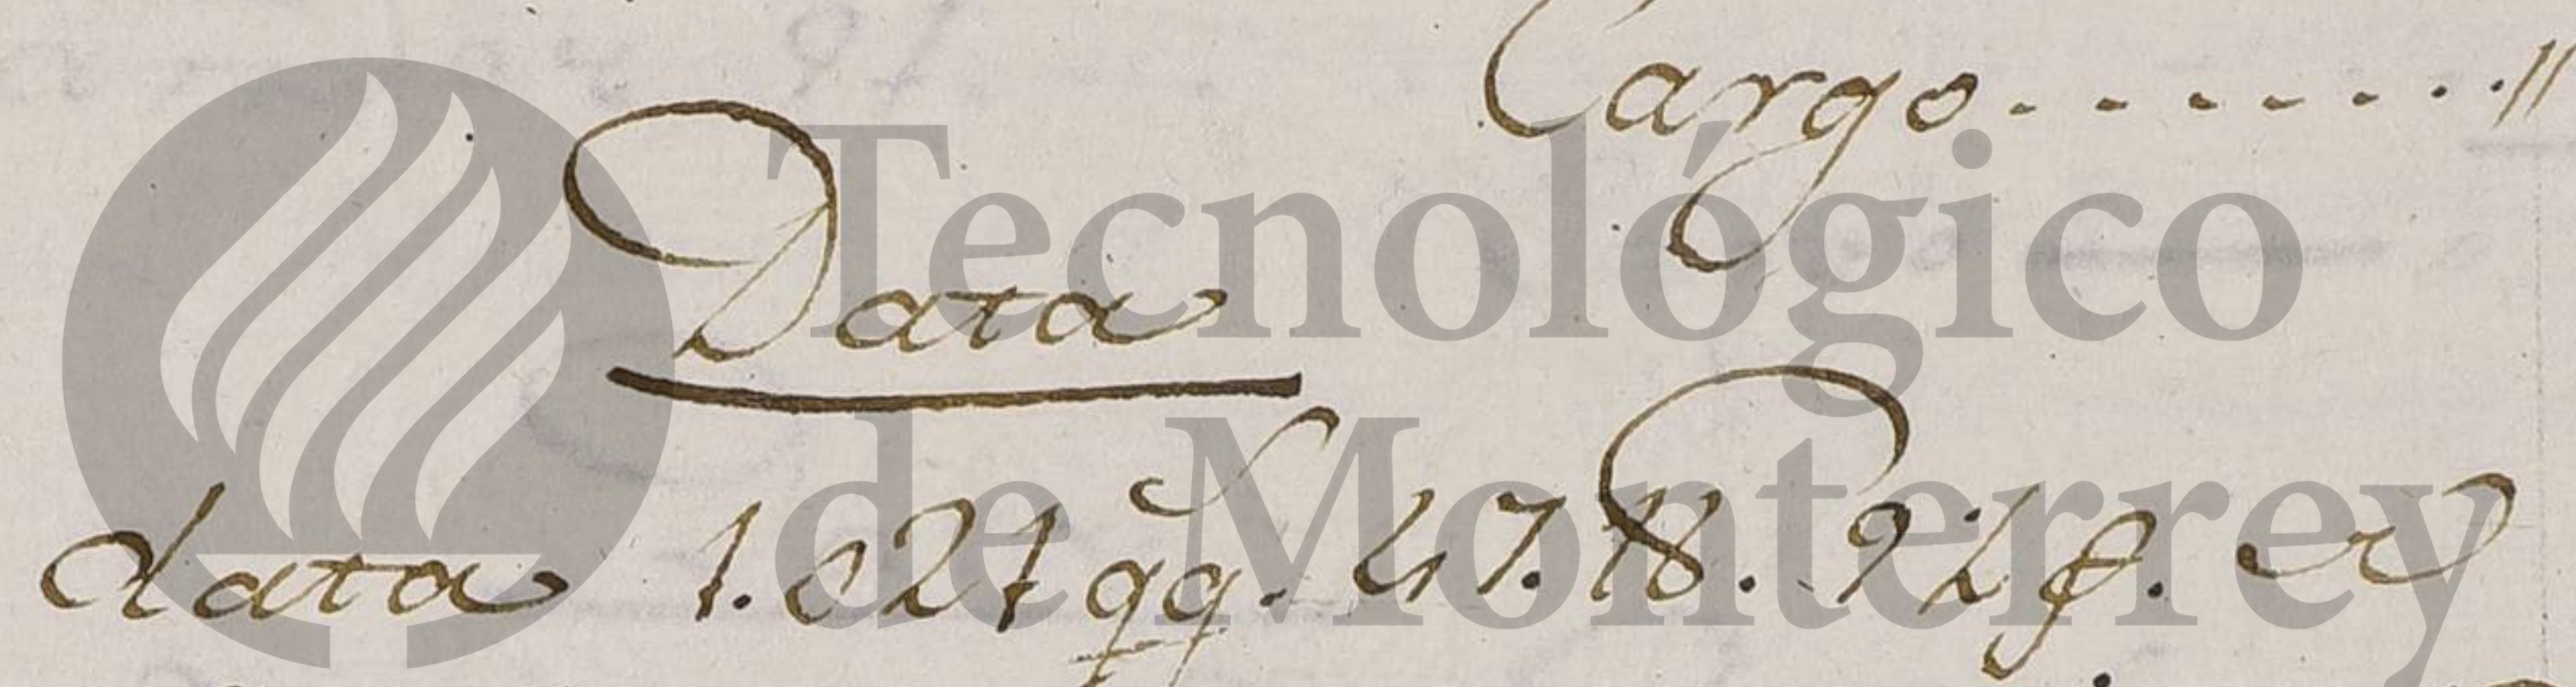 Cargo - - - - - - - . . "
Data
data 1.021 qq.s 47. 18.
Tecnológico
de Monterrey